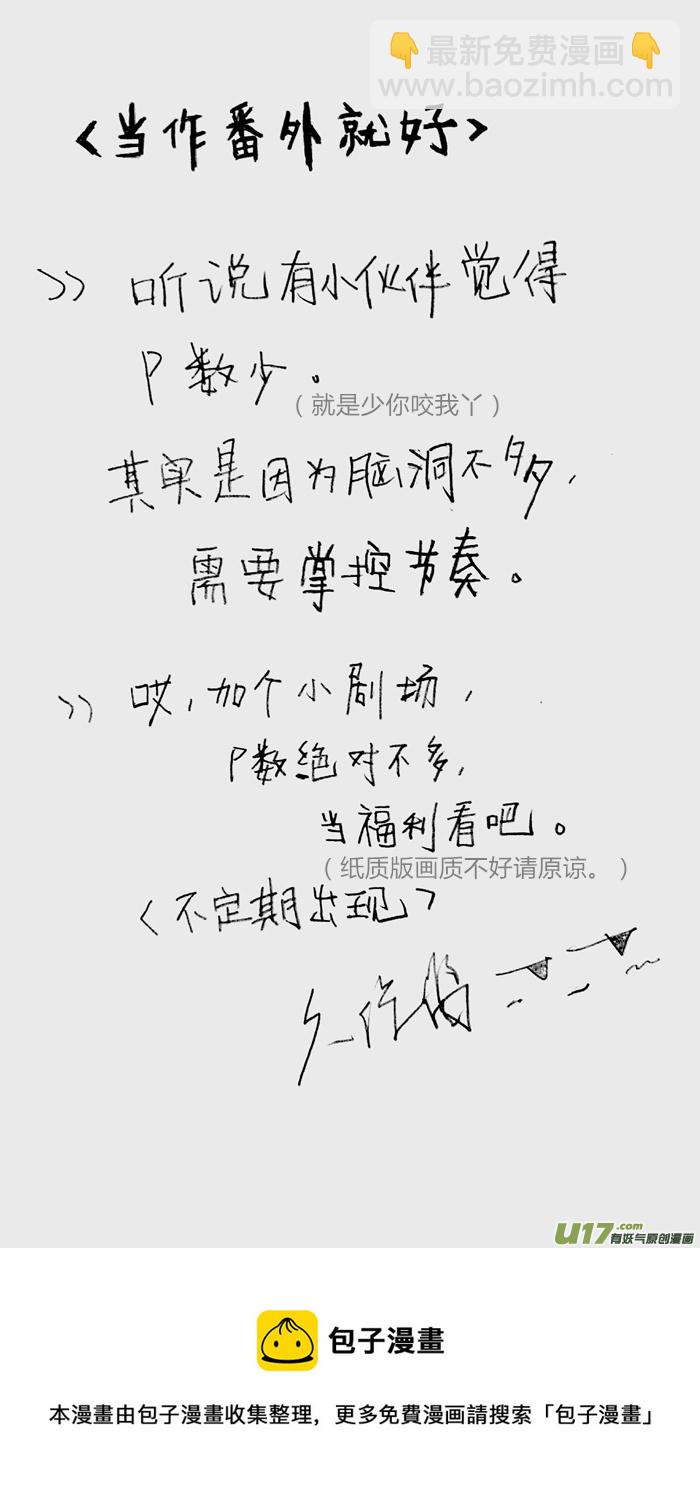 👇最新免费漫画👇
www.baozimh.com
<当作番外就好>
>> 听说有小伙伴觉得
P数少。
（就是少你咬我丫）
其实是因为脑洞不多,
需要掌控节奏。
>> 哎,加个小剧场,
P数绝对不多,
当福利看吧。
（纸质版画质不好请原谅。）
<不定期出现>
U17.com
有妖气原创漫画
包子漫畫
本漫畫由包子漫畫收集整理，更多免費漫画請搜索「包子漫畫」